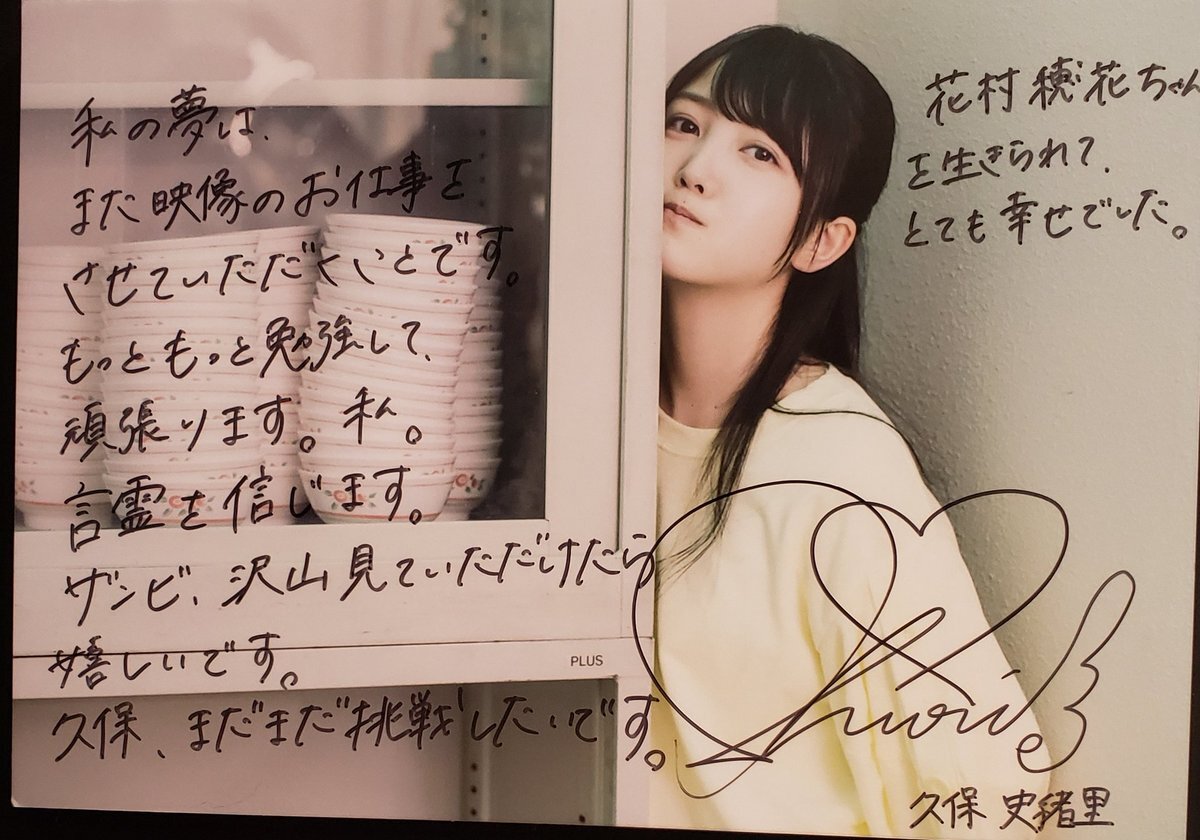 私の夢は、
また映像のお仕事を
させていただくことです。
もっともっと勉強して、
頑張ります。私。
言霊を信じます。
ザンビ、沢山見ていただけたら
嬉しいです。
久保、まだまだ挑戦したいです。
花村穂花ちゃん
を生きられて、
とても幸せでした。
PLUS
Shiori
久保 史緒里